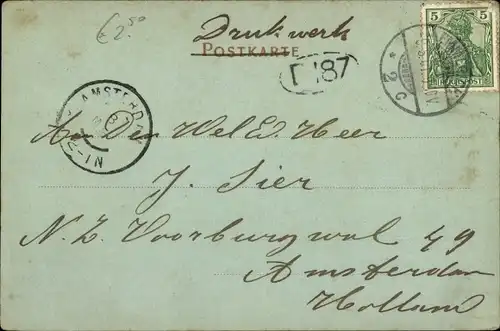 €2.50
Druckwerk
POSTKARTE
187
5 5
REICHSPOST
* 2 c
AMSTERDAM
Aan Den Wel Ed. Heer
J. Sier
N.Z. Voorburgwal 49
Amsterdam
Holland